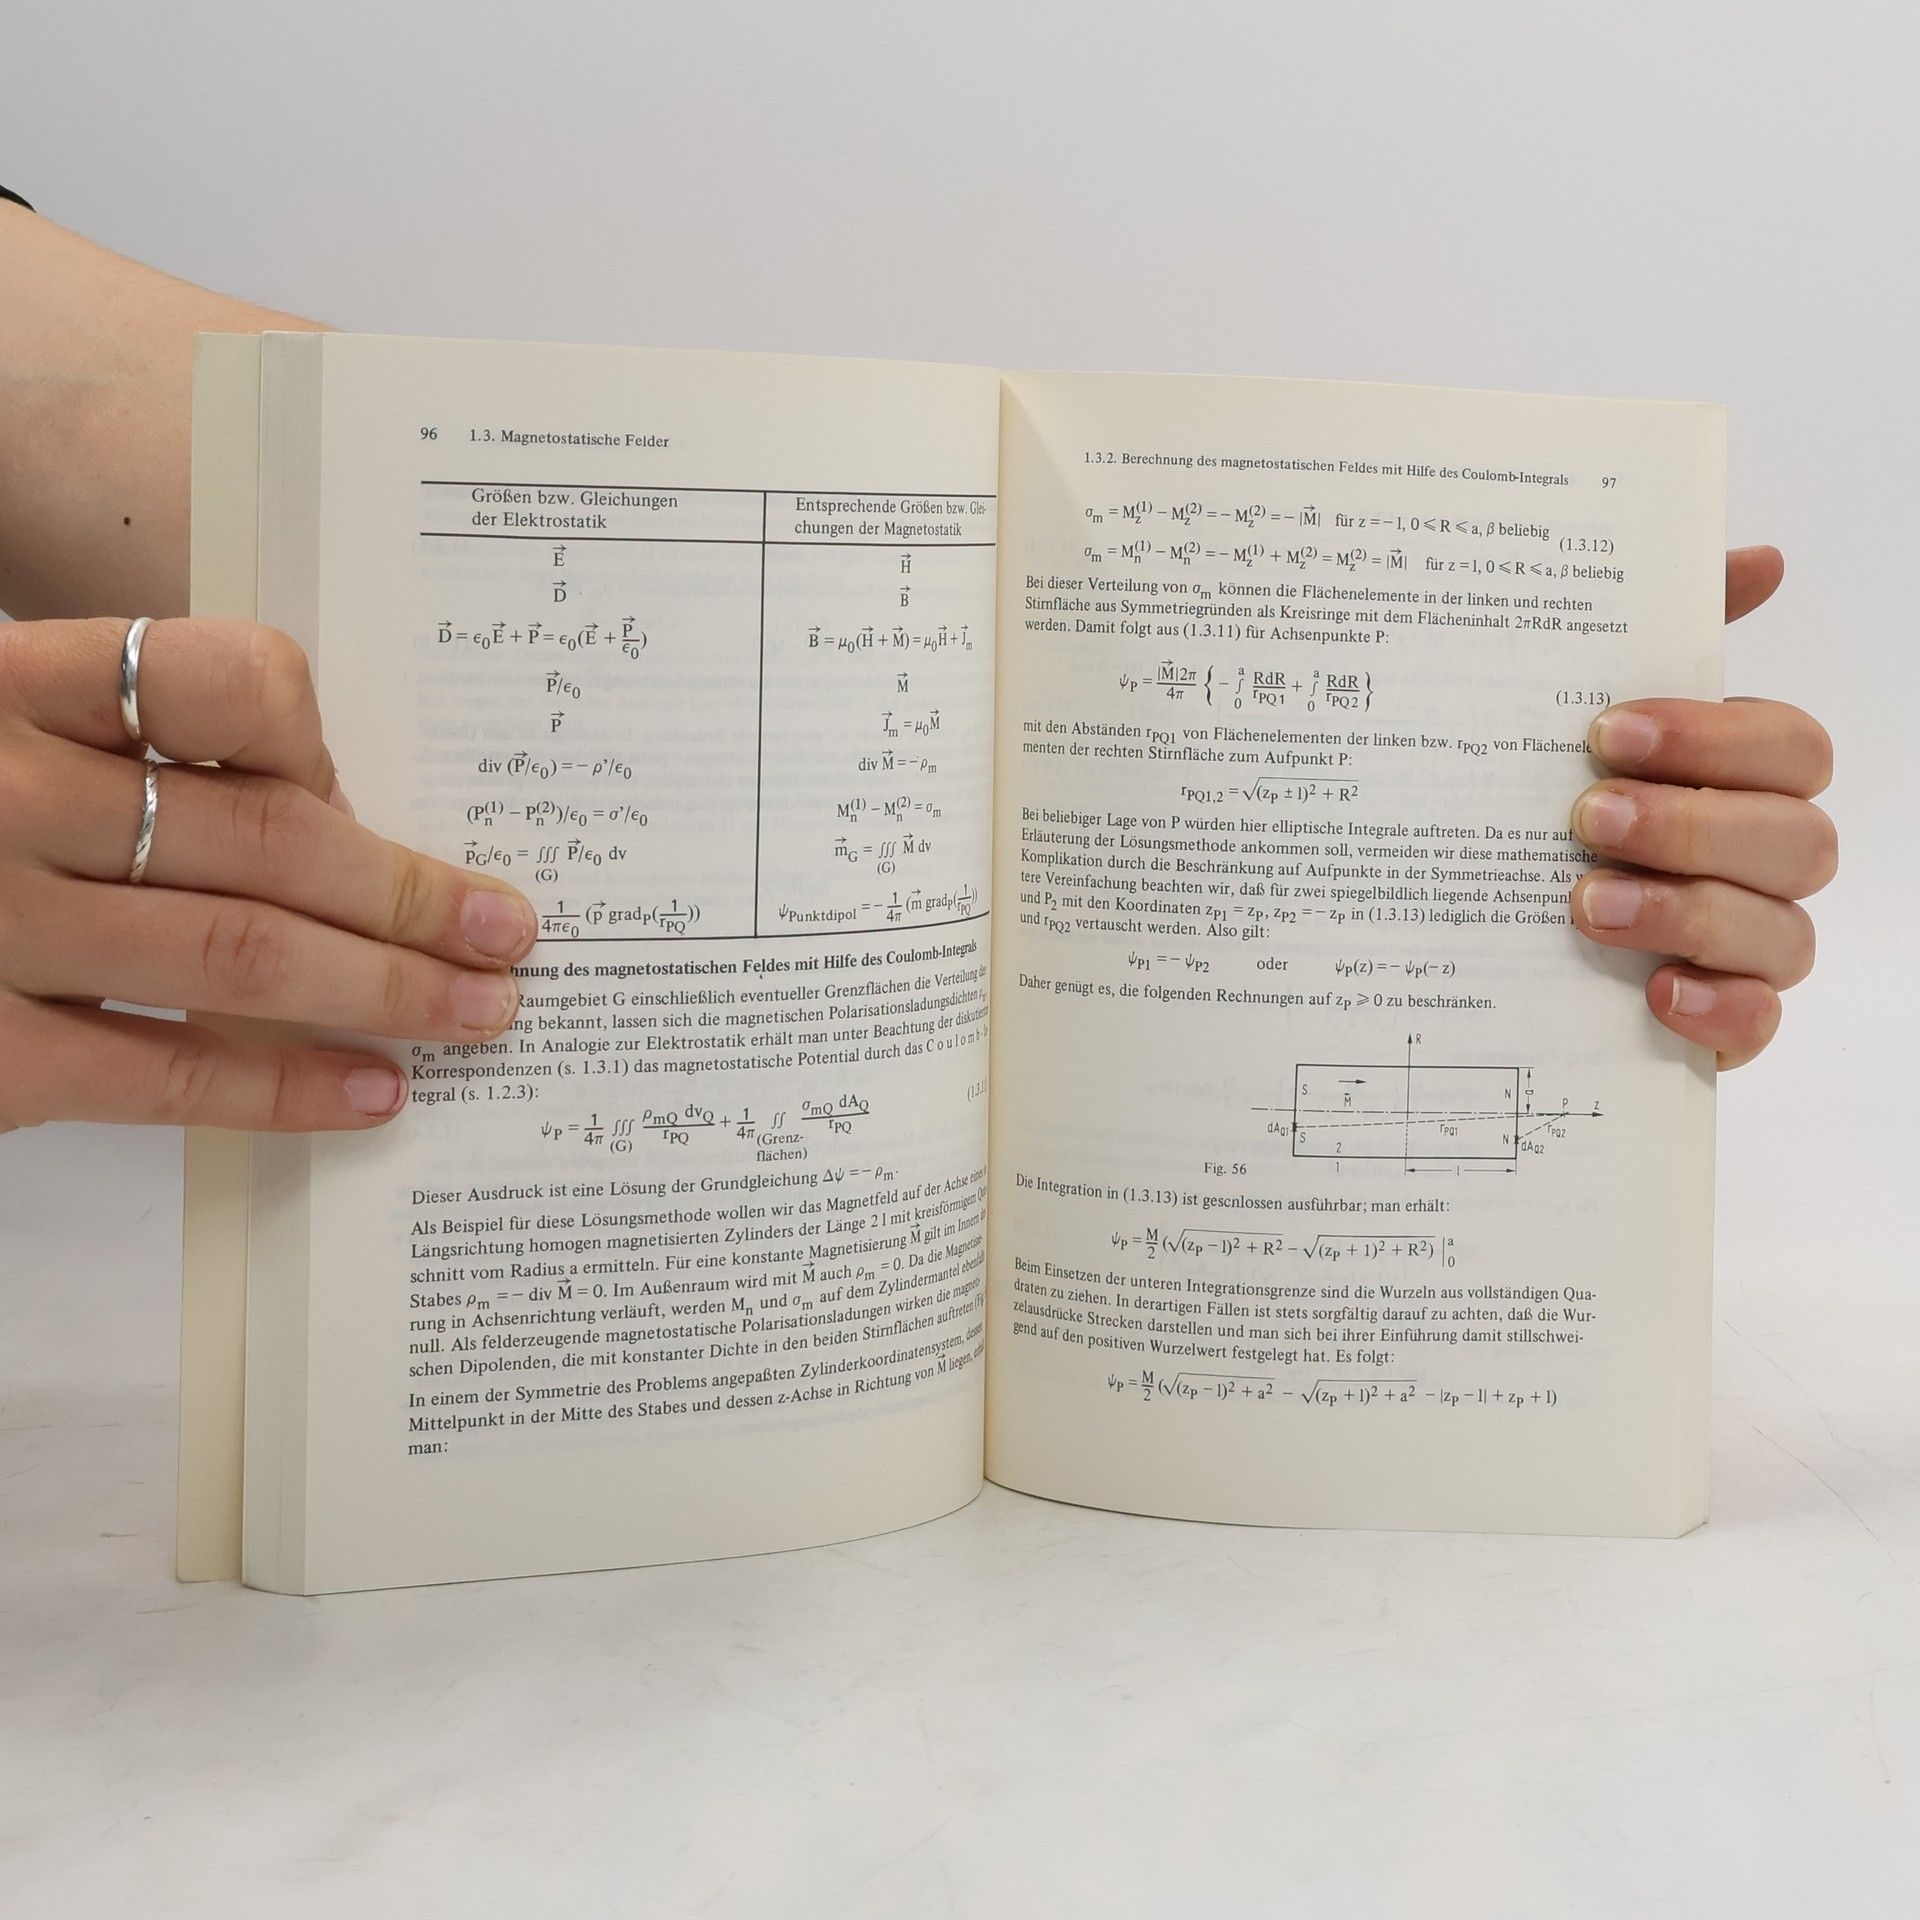 96 1.3. Magnetostatische Felder
Größen bzw. Gleichungen
der Elektrostatik
Entsprechende Größen bzw. Glei-
chungen der Magnetostatik
E⃗ H⃗
D⃗ B⃗
D⃗ = ϵ₀E⃗ + P⃗ = ϵ₀(E⃗ + P⃗/ϵ₀) B⃗ = μ₀(H⃗ + M⃗) = μ₀H⃗ + J⃗m
P⃗/ϵ₀ M⃗
P⃗ J⃗m = μ₀M⃗
div (P⃗/ϵ₀) = − ρ’/ϵ₀ div M⃗ = − ρm
(Pn(1) − Pn(2))/ϵ₀ = σ’/ϵ₀ Mn(1) − Mn(2) = σm
p⃗G/ϵ₀ = ∭ P⃗/ϵ₀ dv m⃗G = ∭ M⃗ dv
(G) (G)
1/4πϵ₀ (p⃗ gradP(1/rPQ)) ψPunktdipol = − 1/4π (m⃗ gradP(1/rPQ))
des magnetostatischen Feldes mit Hilfe des Coulomb-Integrals
Raumgebiet G einschließlich eventueller Grenzflächen die Verteilung der
bekannt, lassen sich die magnetischen Polarisationsladungsdichten ρm,
σm angeben. In Analogie zur Elektrostatik erhält man unter Beachtung der diskutierten
Korrespondenzen (s. 1.3.1) das magnetostatische Potential durch das Coulomb-In-
tegral (s. 1.2.3):
ψP = 1/4π ∭ ρmQ dvQ/rPQ + 1/4π ∬ σmQ dAQ/rPQ
(G) (Grenz-
flächen)
Dieser Ausdruck ist eine Lösung der Grundgleichung Δψ = − ρm.
Als Beispiel für diese Lösungsmethode wollen wir das Magnetfeld auf der Achse eines
Längsrichtung homogen magnetisierten Zylinders der Länge 2 l mit kreisförmigem
schnitt vom Radius a ermitteln. Für eine konstante Magnetisierung M⃗ gilt im Innern des
Stabes ρm = − div M⃗ = 0. Im Außenraum wird mit M⃗ auch ρm = 0. Da die Magnetisie-
rung in Achsenrichtung verläuft, werden Mn und σm auf dem Zylindermantel ebenfalls
null. Als felderzeugende magnetostatische Polarisationsladungen wirken die magneti-
schen Dipolenden, die mit konstanter Dichte in den beiden Stirnflächen auftreten
In einem der Symmetrie des Problems angepaßten Zylinderkoordinatensystem, dessen
Mittelpunkt in der Mitte des Stabes und dessen z-Achse in Richtung von M⃗ liegen,
man:
1.3.2. Berechnung des magnetostatischen Feldes mit Hilfe des Coulomb-Integrals 97
σm = Mz(1) − Mz(2) = − Mz(2) = − |M⃗| für z = − l, 0 ⩽ R ⩽ a, β beliebig
(1.3.12)
σm = Mn(1) − Mn(2) = − Mz(1) + Mz(2) = Mz(2) = |M⃗| für z = l, 0 ⩽ R ⩽ a, β beliebig
Bei dieser Verteilung von σm können die Flächenelemente in der linken und rechten
Stirnfläche aus Symmetriegründen als Kreisringe mit dem Flächeninhalt 2πRdR angesetzt
werden. Damit folgt aus (1.3.11) für Achsenpunkte P:
ψP = |M⃗|2π/4π { − ∫₀ᵃ RdR/rPQ1 + ∫₀ᵃ RdR/rPQ2 } (1.3.13)
mit den Abständen rPQ1 von Flächenelementen der linken bzw. rPQ2 von Flächenele
menten der rechten Stirnfläche zum Aufpunkt P:
rPQ1,2 = √((zP ± l)² + R²)
Bei beliebiger Lage von P würden hier elliptische Integrale auftreten. Da es nur auf
Erläuterung der Lösungsmethode ankommen soll, vermeiden wir diese mathematische
Komplikation durch die Beschränkung auf Aufpunkte in der Symmetrieachse. Als
tere Vereinfachung beachten wir, daß für zwei spiegelbildlich liegende Achsenpun
und P₂ mit den Koordinaten zP1 = zP, zP2 = − zP in (1.3.13) lediglich die Größen
und rPQ2 vertauscht werden. Also gilt:
ψP1 = − ψP2 oder ψP(z) = − ψP(− z)
Daher genügt es, die folgenden Rechnungen auf zP ⩾ 0 zu beschränken.
R
S M⃗ N a P z
dAQ1 S rPQ1 N dAQ2 rPQ2
2
1 l
Fig. 56
Die Integration in (1.3.13) ist geschlossen ausführbar; man erhält:
ψP = M/2 (√((zP − l)² + R²) − √((zP + l)² + R²)) |₀ᵃ
Beim Einsetzen der unteren Integrationsgrenze sind die Wurzeln aus vollständigen Qua-
draten zu ziehen. In derartigen Fällen ist stets sorgfältig darauf zu achten, daß die Wur-
zelausdrücke Strecken darstellen und man sich bei ihrer Einführung damit stillschwei-
gend auf den positiven Wurzelwert festgelegt hat. Es folgt:
ψP = M/2 (√((zP − l)² + a²) − √((zP + l)² + a²) − |zP − l| + zP + l)